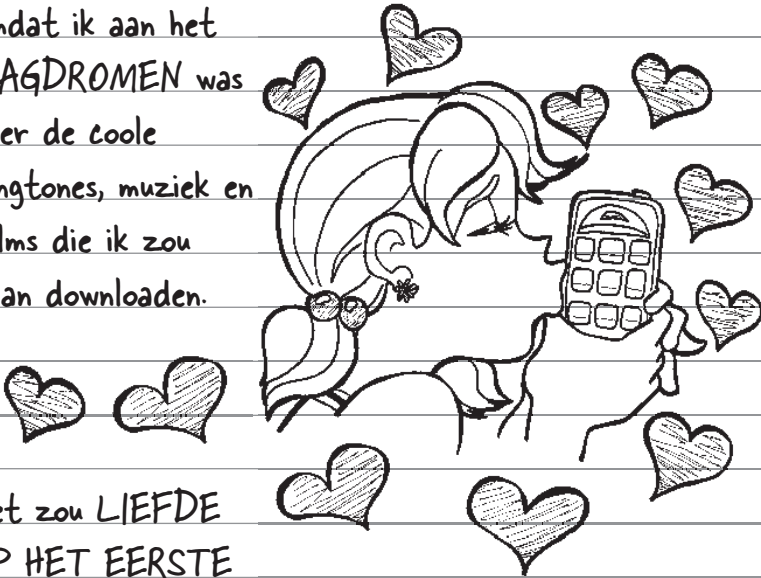 ndat ik aan het
AGDROMEN was
er de coole
ngtones, muziek en
lms die ik zou
an downloaden.
et zou LIEFDE
P HET EERSTE